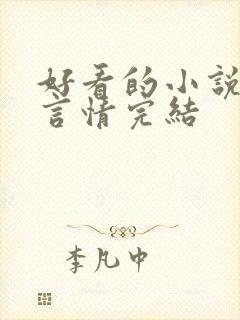 好看的小說
言情完結
李凡中